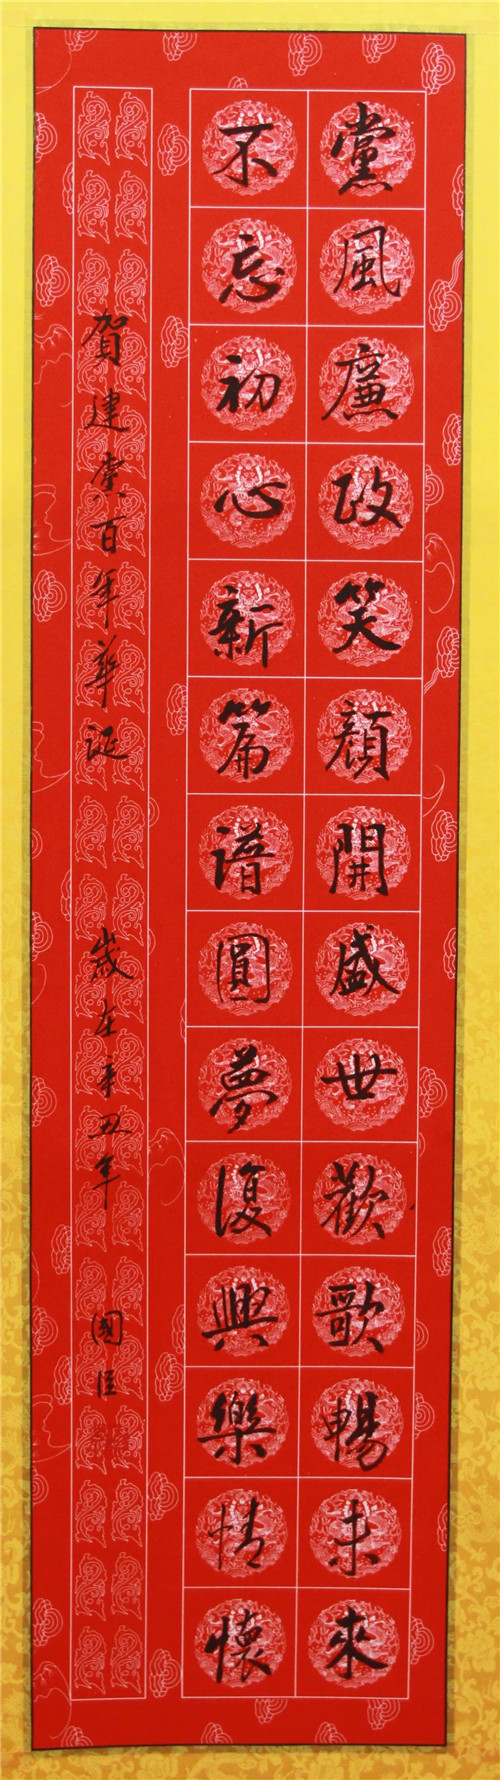 黨風廉政笑顏開盛世歡歌暢未來
不忘初心新篇譜圓夢復興樂情懷
賀建党百年華誕 歲在辛丑年 國臣